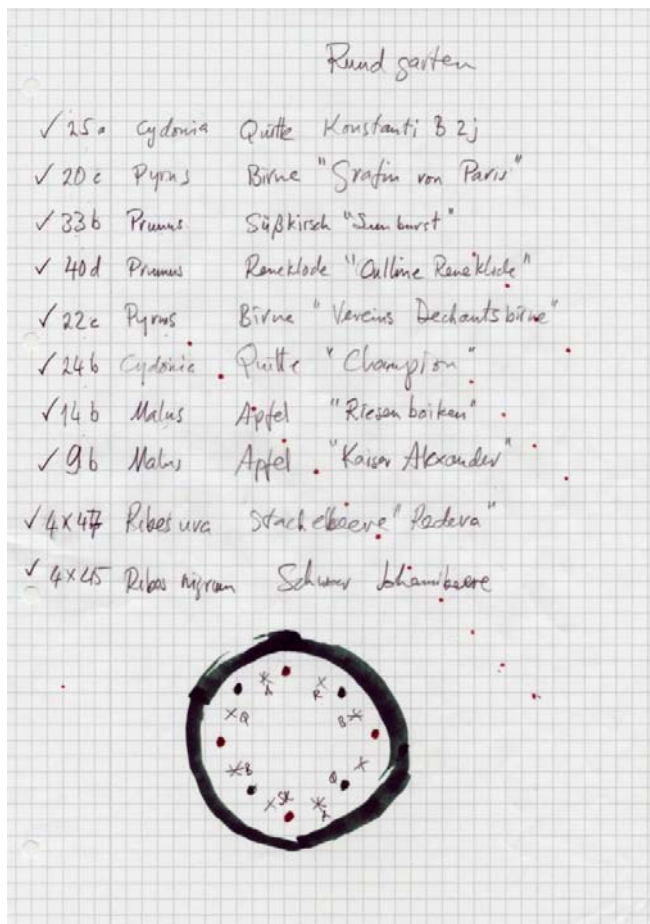 Rundgarten
✓ 25a Cydonia Quitte Konstanti B 2j
✓ 20c Pyrus Birne "Gräfin von Paris"
✓ 33b Prunus Süßkirsch "Sunburst"
✓ 40d Prunus Reneklode "Oulline Reneklode"
✓ 22c Pyrus Birne "Vereins Dechantsbirne"
✓ 24b Cydonia Quitte "Champion"
✓ 14b Malus Apfel "Riesenboiken"
✓ 9b Malus Apfel "Kaiser Alexander"
✓ 4x47 Ribes uva Stachelbeere "Redeva"
✓ 4x45 Ribes nigrum Schwar Johanibeere
A R
Q B
B Q
SK A